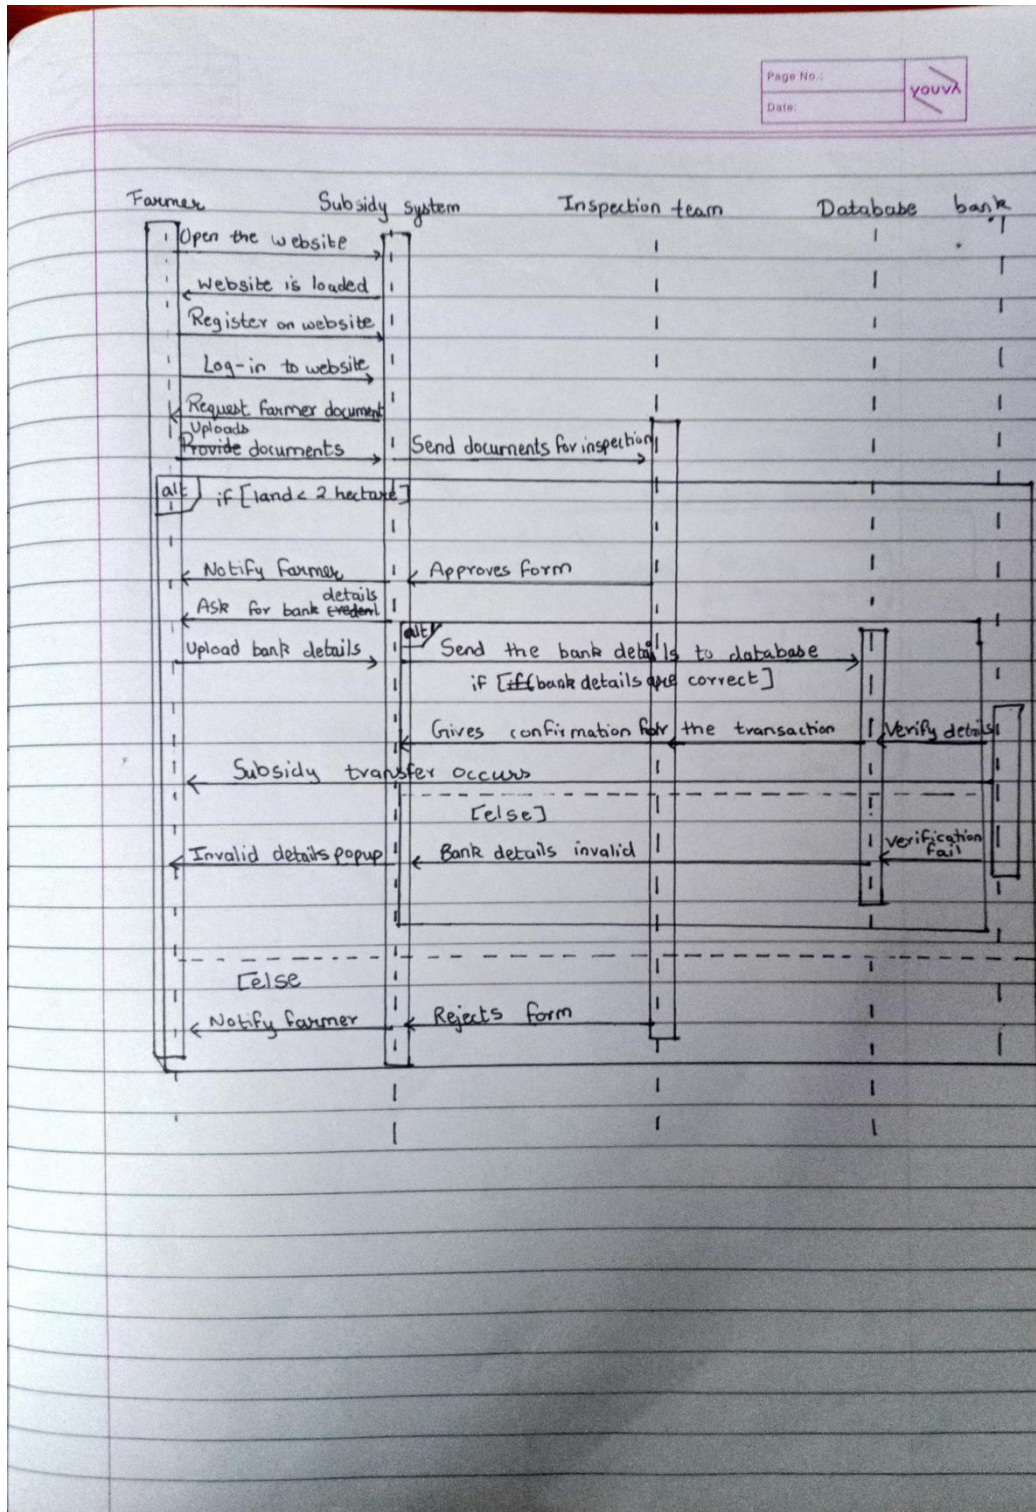 Page No.:
Date:
youva
Farmer Subsidy system Inspection team Database bank
Open the website
Website is loaded
Register on website
Log-in to website
Request farmer document
Uploads
Provide documents Send documents for inspection
alt if [land < 2 hectare]
Notify farmer Approves form
details
Ask for bank
alt
Upload bank details Send the bank details to database
if [if (bank details are correct]
Gives confirmation for the transaction Verify details
Subsidy transfer occurs
[else]
Invalid details popup Bank details invalid verification
fail
[else
Notify farmer Rejects form